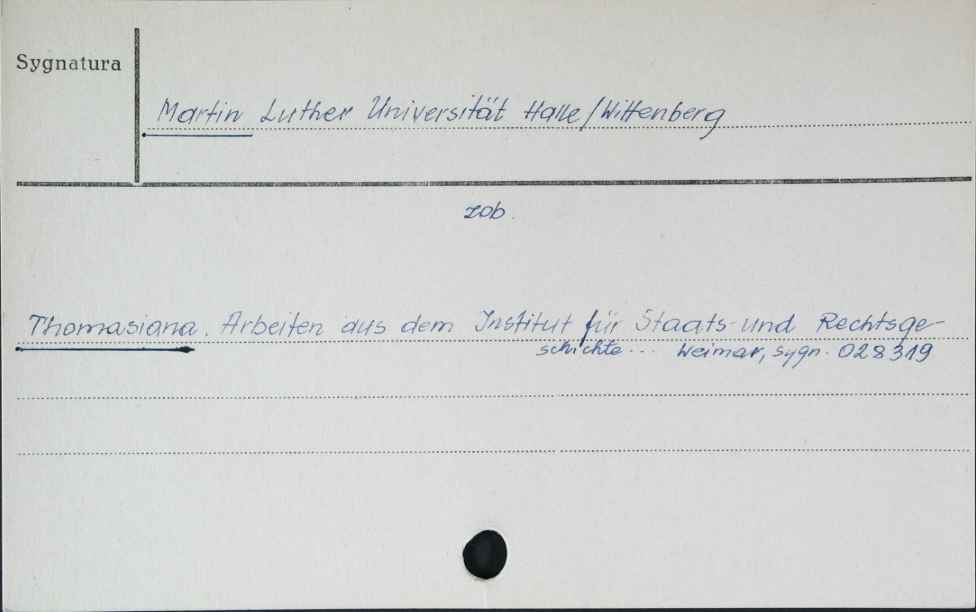 Sygnatura
Martin Luther Universität Halle/Wittenberg
zob.
Thomasiana. Arbeiten aus dem Institut für Staats- und Rechtsge-
schichte... Weimar, sygn. 028319